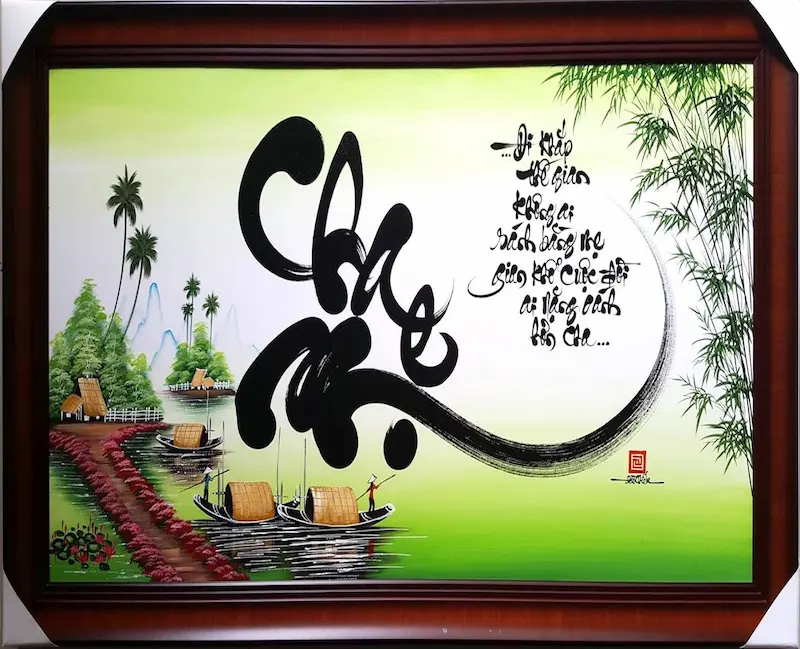 Cha
Mẹ
...Đi khắp
thế gian
không ai
sánh bằng mẹ
gian khổ cuộc đời
ai nặng gánh
hơn cha...